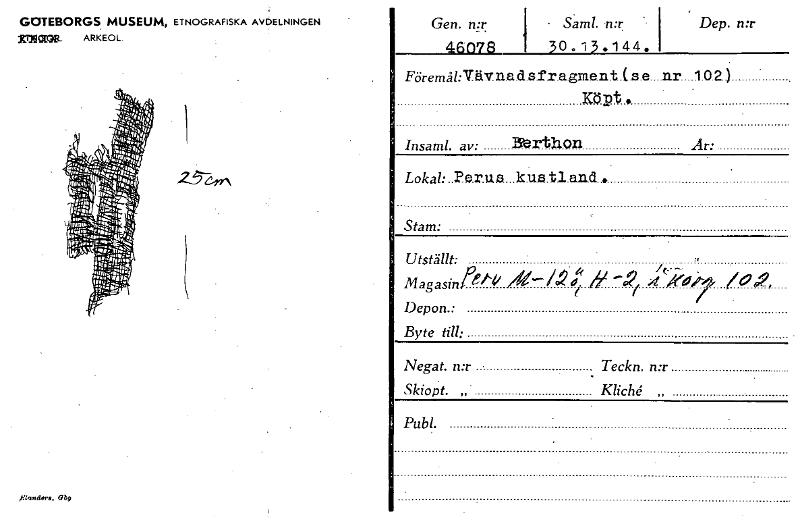 GÖTEBORGS MUSEUM, ETNOGRAFISKA AVDELNINGEN
ARKEOL.
25cm
Elanders, Gbg
Gen. n:r Saml. n:r Dep. n:r
46078 30.13.144.
Föremål: Vävnadsfragment(se nr 102)
Köpt.
Insaml. av: Berthon År:
Lokal: Perus kustland.
Stam:
Utställt:
Magasin: Peru M-12ö, H-2, i korg 102.
Depon.:
Byte till:
Negat. n:r Teckn. n:r
Skiopt. „ Kliché „
Publ.